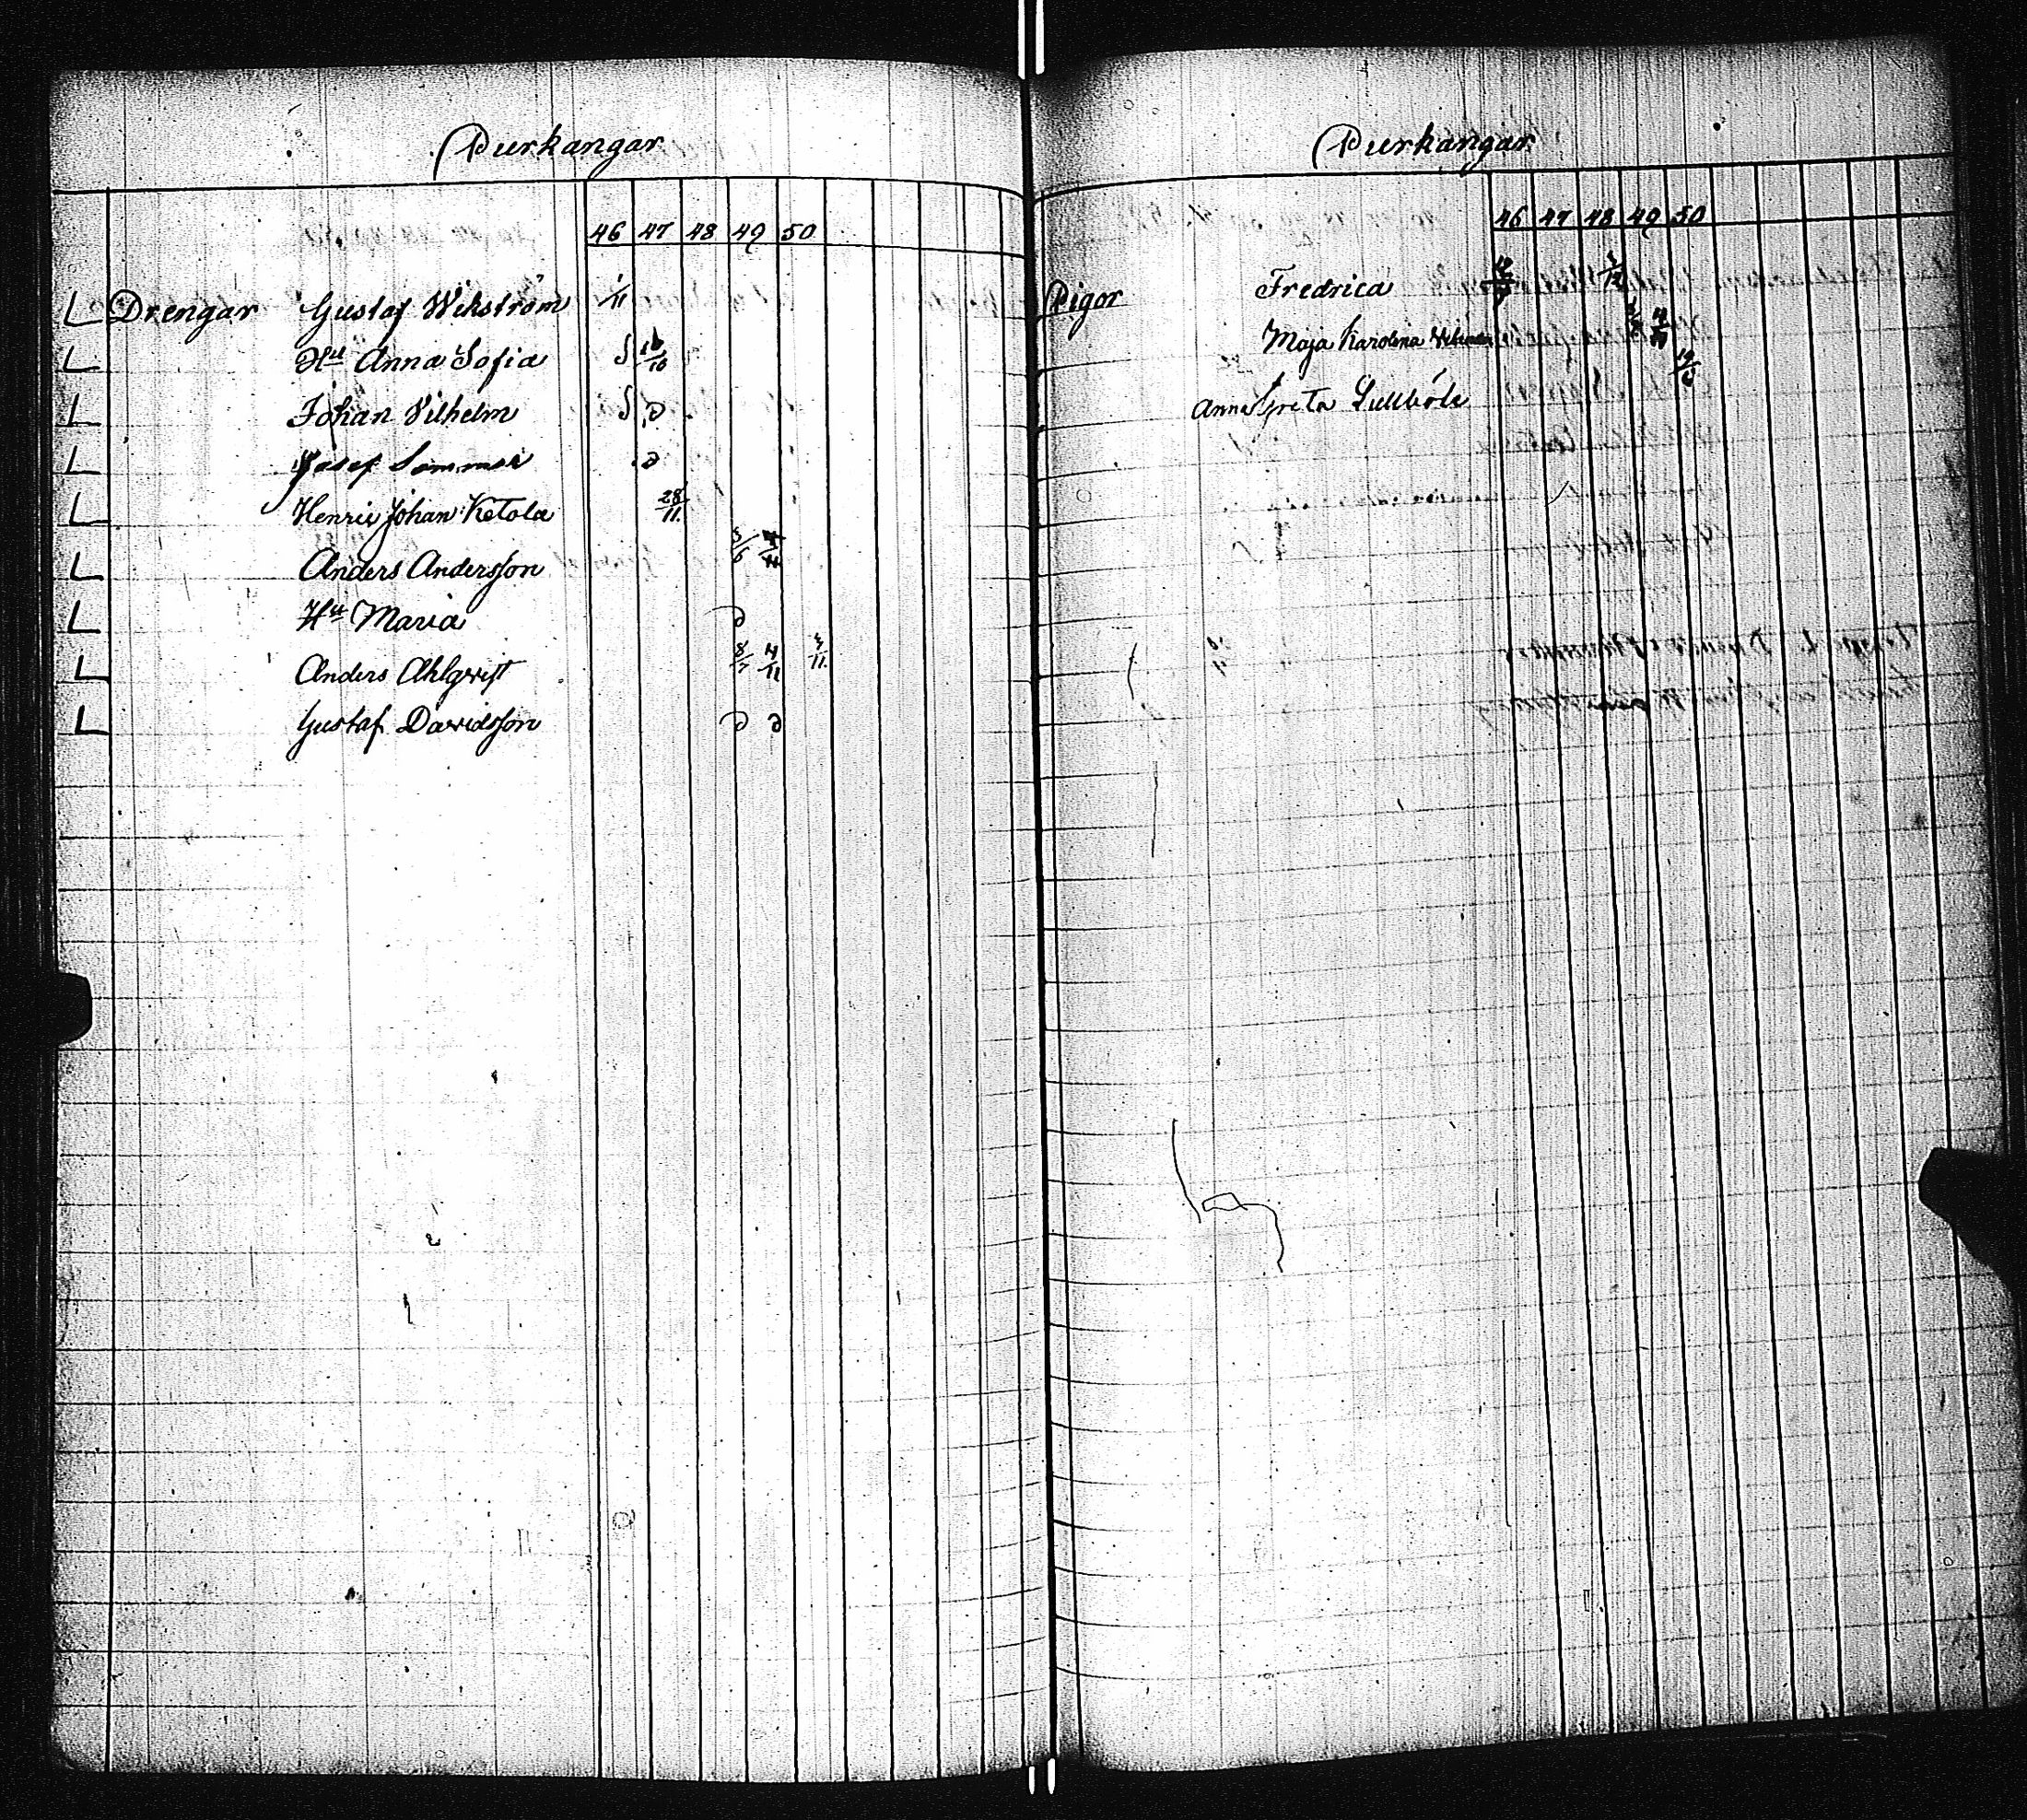 Purkangar
46 47 48 49 50
Drengar Gustaf Wikström 1/11
Hu Anna Sofia S 16/10
Johan Vilhelm S D
Josef Sommar D
Henric Johan Ketola 28/11
Anders Andersson 3/6
Hu Maria D
Anders Ahlqvist 8/7 4/11 3/11
Gustaf Davidsson D D
Purkangar
46 47 48 49 50
Pigor Fredrica
Maja Karolina
Anna Greta Lillböle